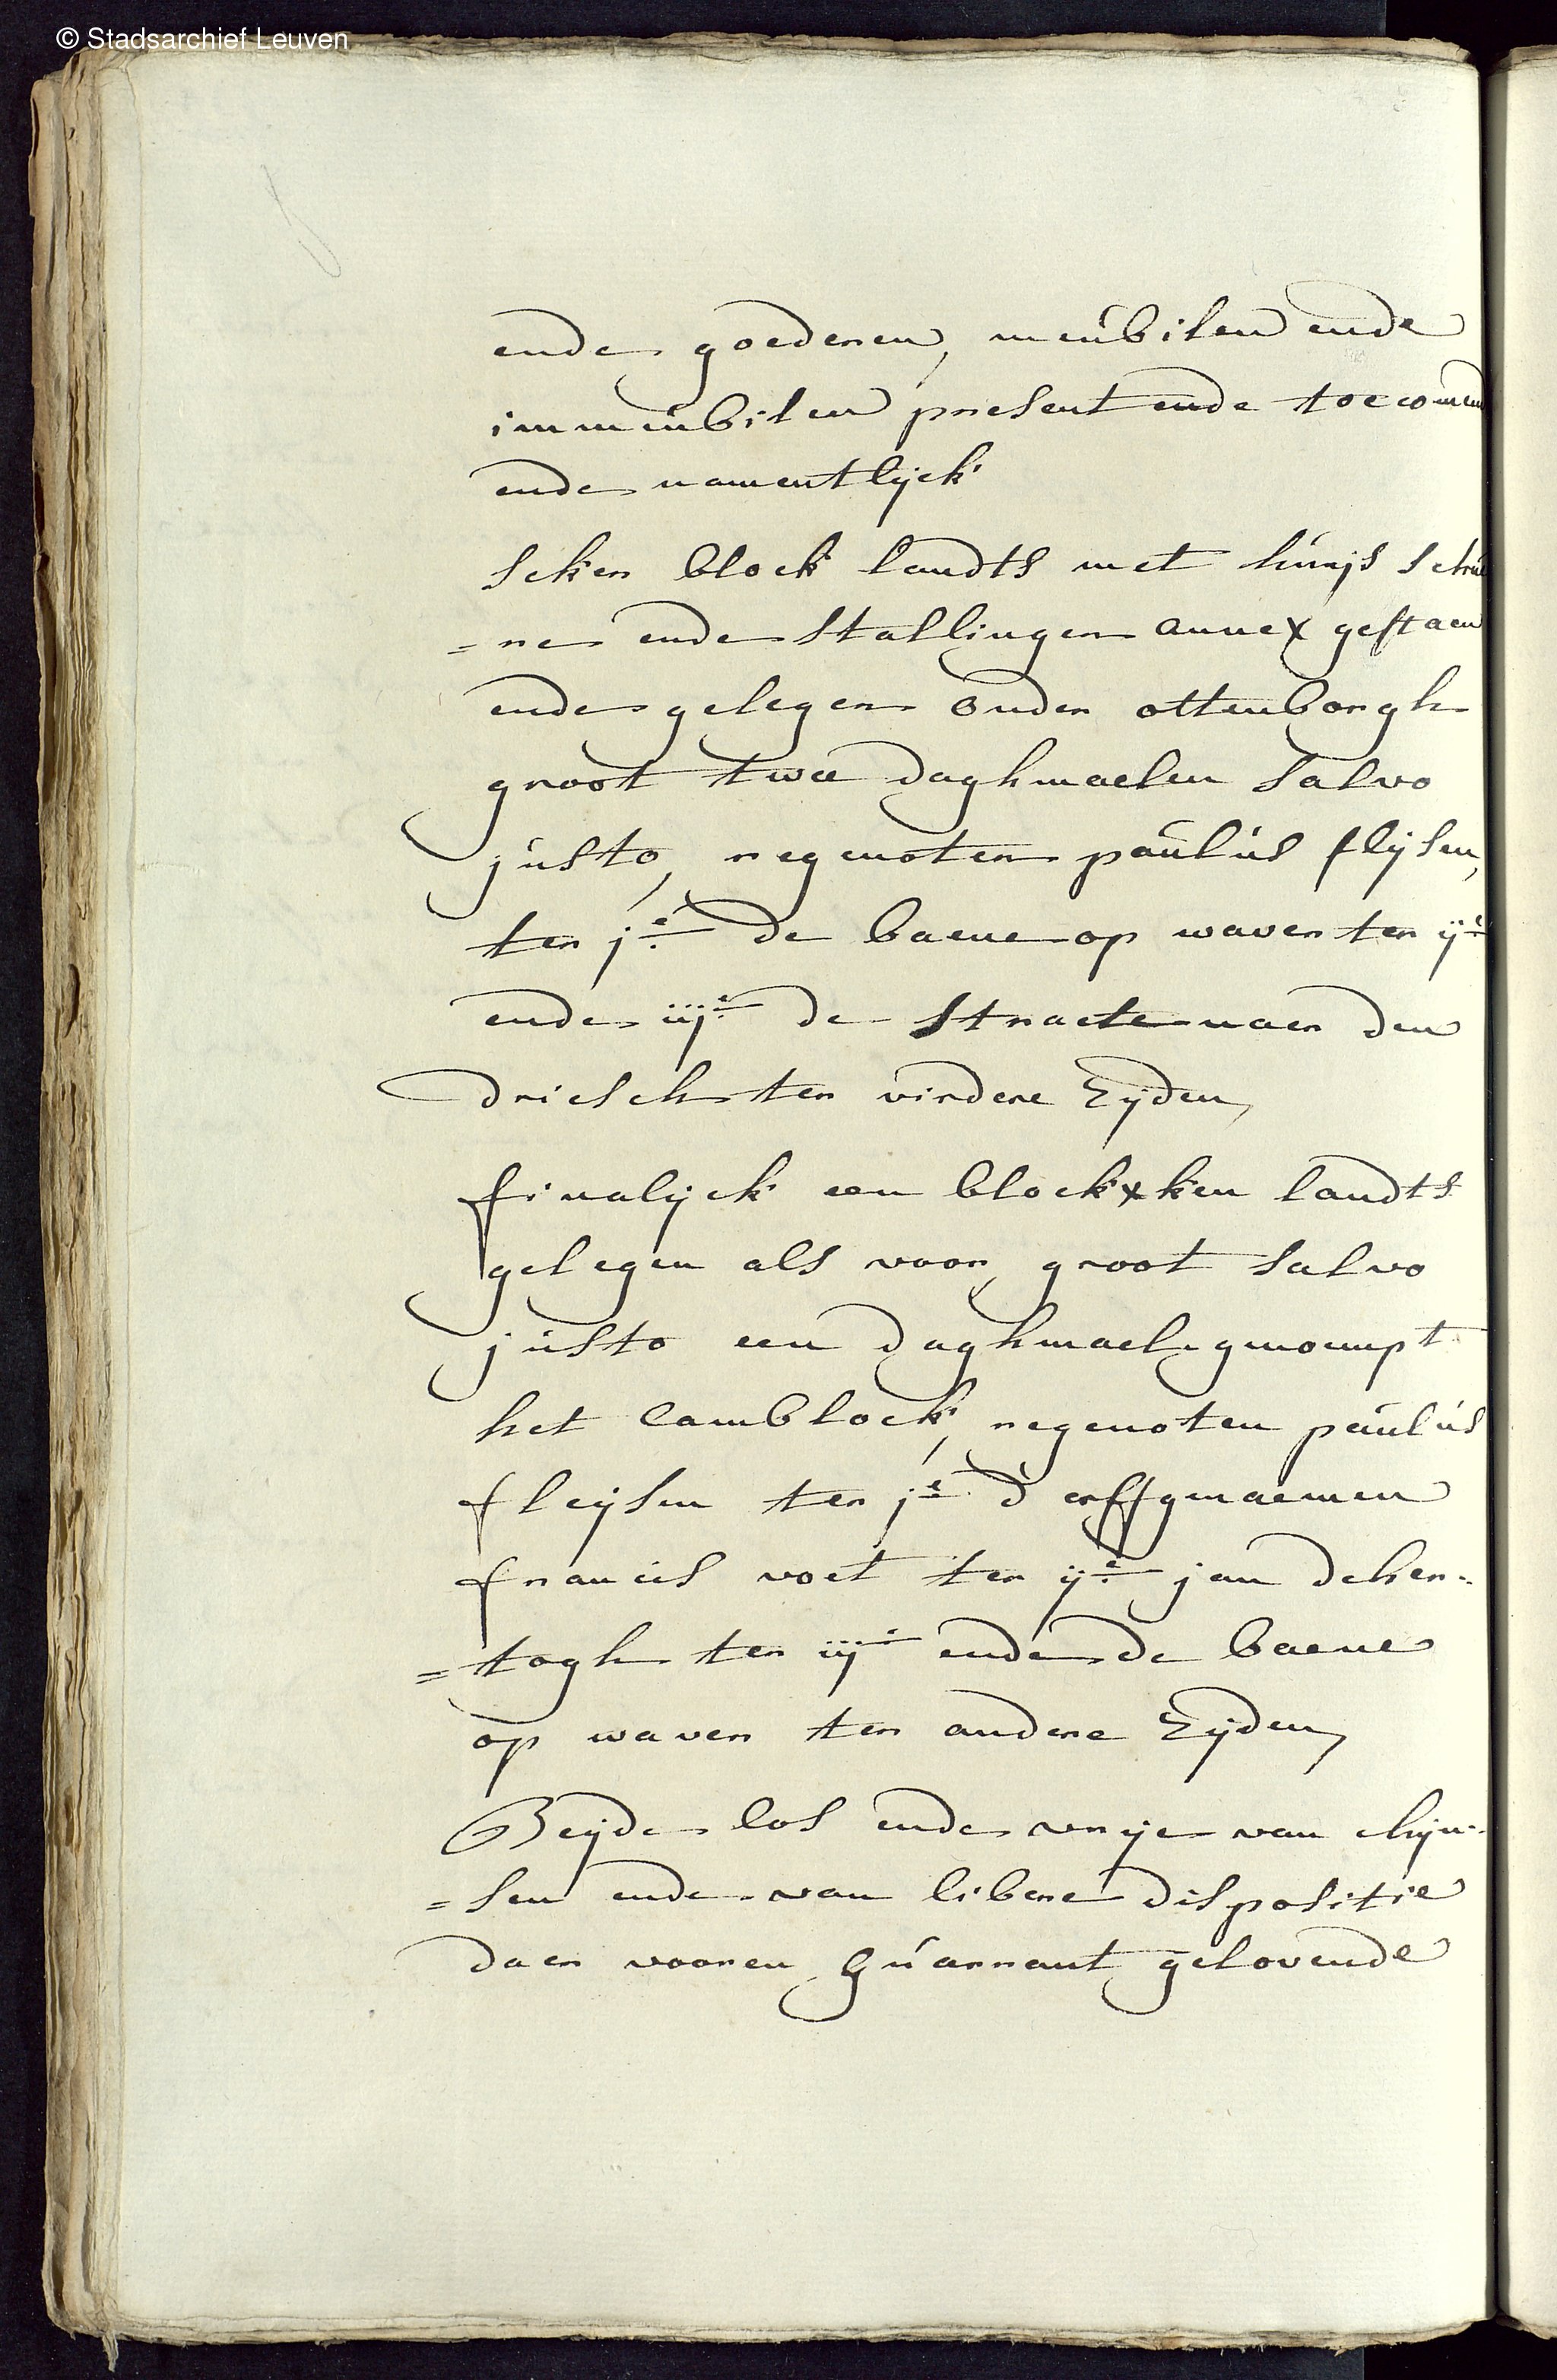 © Stadsarchief Leuven
ende goederen, meubilen ende
immeubilen present ende toecomend
ende namentlijck
seker block landts met huijs schue
=re ende stallingen annex gestaen
ende gelegen onder ottenborgh
groot twee daghmaelen salvo
justo, regenoten paulus flijsen,
ter je de baene op waver ter ije
ende iije de straete naer den
driesch ter virdere zijden,
finalijck een blockxken landts
gelegen als voor, groot salvo
justo een daghmael, genoempt
het lamblock, regenoten paulus
fleijsen ter je d'erffgenaemen
francis voet ter ije jan deher=
=togh ter iije ende de baene
op waver ter andere zijden,
Beijde los ende vrije van chijn=
=sen ende van libere dispositie
daer vooren guarrant gelovende